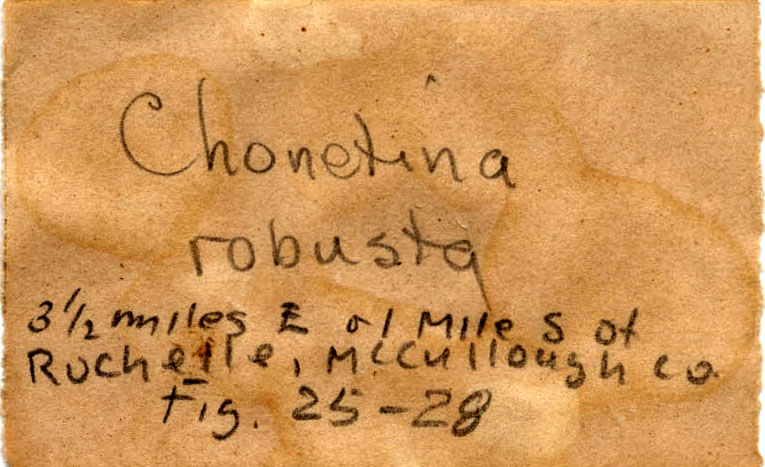 Chonetina
robusta
3 1/2 miles E of 1 Mile S of
Rochelle, McCullough co.
Fig. 25-28